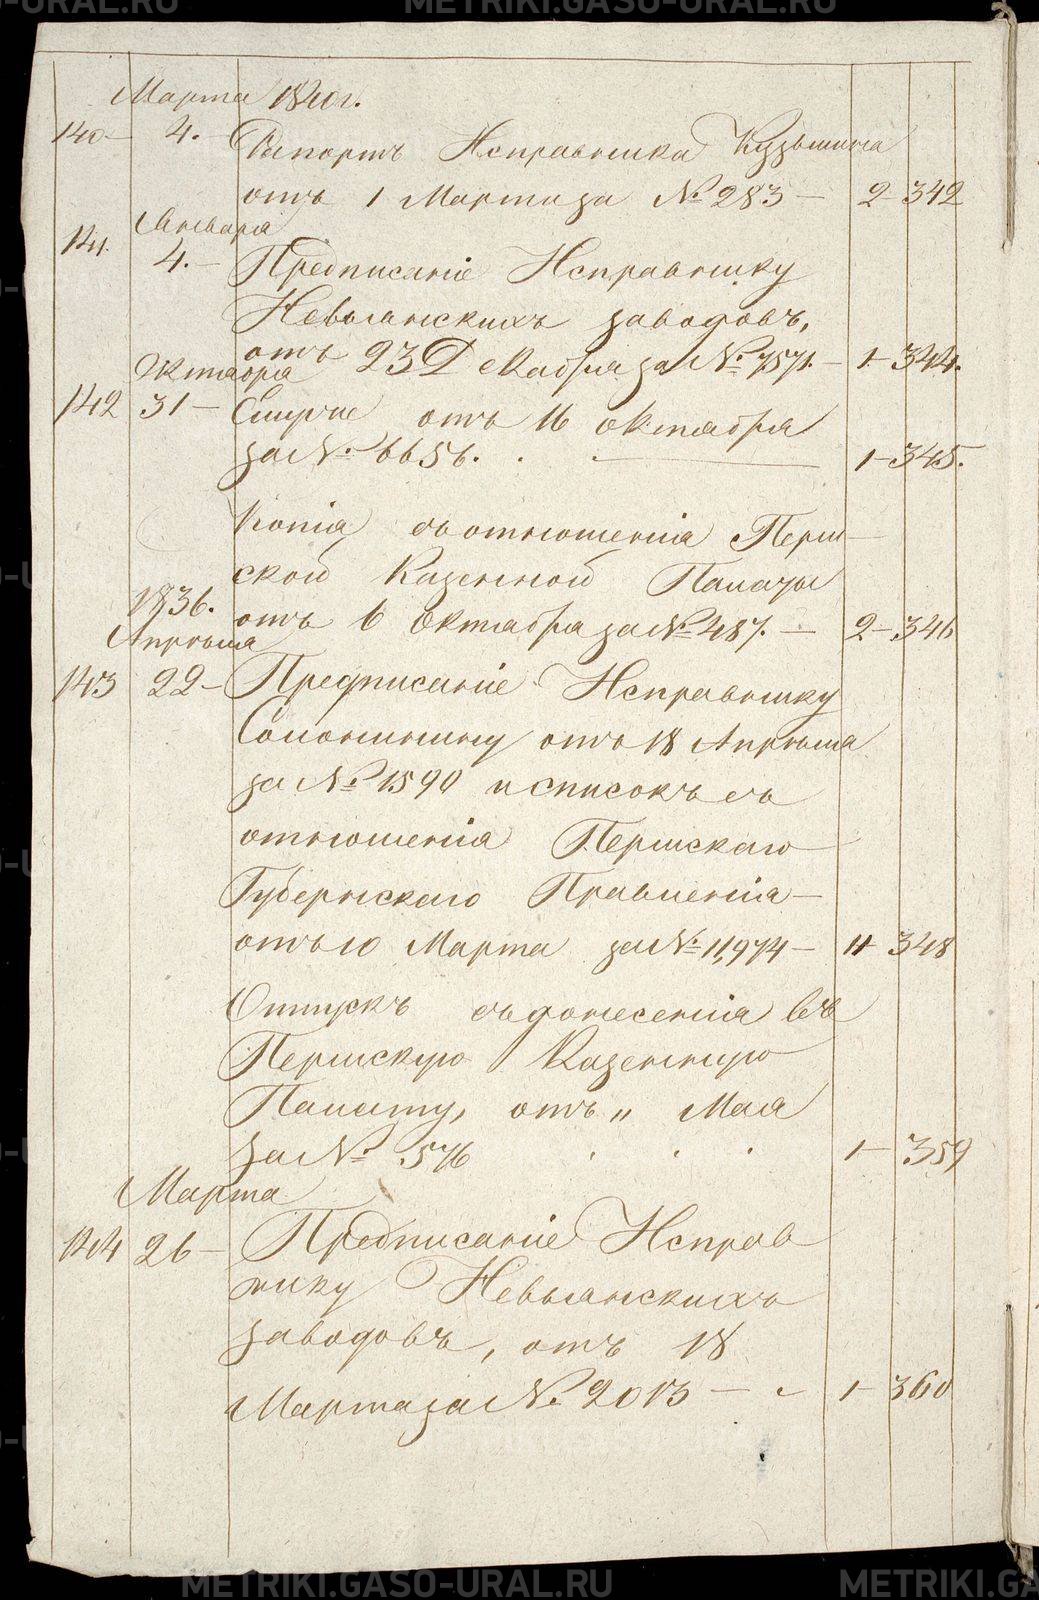 Марта 1840 г.
140 — 4. — Рапортъ Исправника Кузьмина
отъ 1 Марта за № 283 — 2 — 342
Января
141. 4. — Предписаніе Исправнику
Невьянскихъ заводовъ,
отъ 23 Декабря за № 7571. — 1 — 344.
Октября
142 31 — отъ 16 октября
за № 6656. . . — 1 — 345.
Копія съ отношенія Перм-
ской Казенной Палаты
1836. отъ 6 Октября за № 487. — 2 — 346
Апрѣля
143 22 — Предписаніе Исправнику
Соломинину отъ 18 Апрѣля
за № 1590 и списокъ съ
отношенія Пермскаго
Губернскаго Правленія —
отъ 10 Марта за № 11,974 — 11 348
Отпускъ съ донесенія въ
Пермскую Казенную
Палату, отъ „ Мая
за № 576 . . . 1 — 359
Марта
144 26 — Предписаніе Исправ
нику Невьянскихъ
заводовъ, отъ 18
Марта за № 2013 — 1 — 360
METRIKI.GASO-URAL.RU